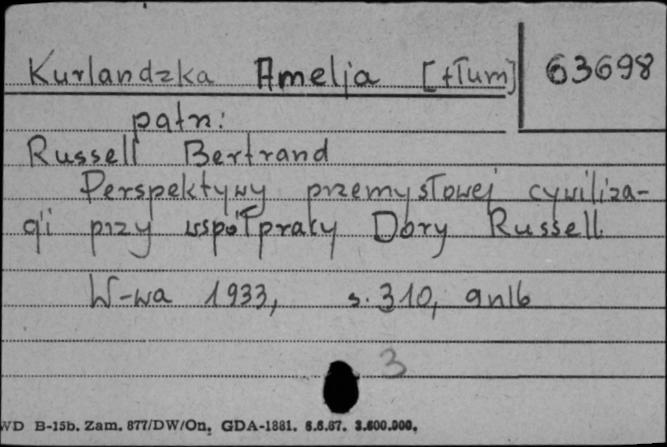 Kurlandzka Amelja [tłum] 63698
patrz:
Russell Bertrand
Perspektywy przemysłowej cywiliza-
cji przy współpracy Dory Russell
W-wa 1933, s. 310, 9nlb
3
WD B-15b. Zam. 877/DW/On. GDA-1881. 6.6.67. 3.600.000.